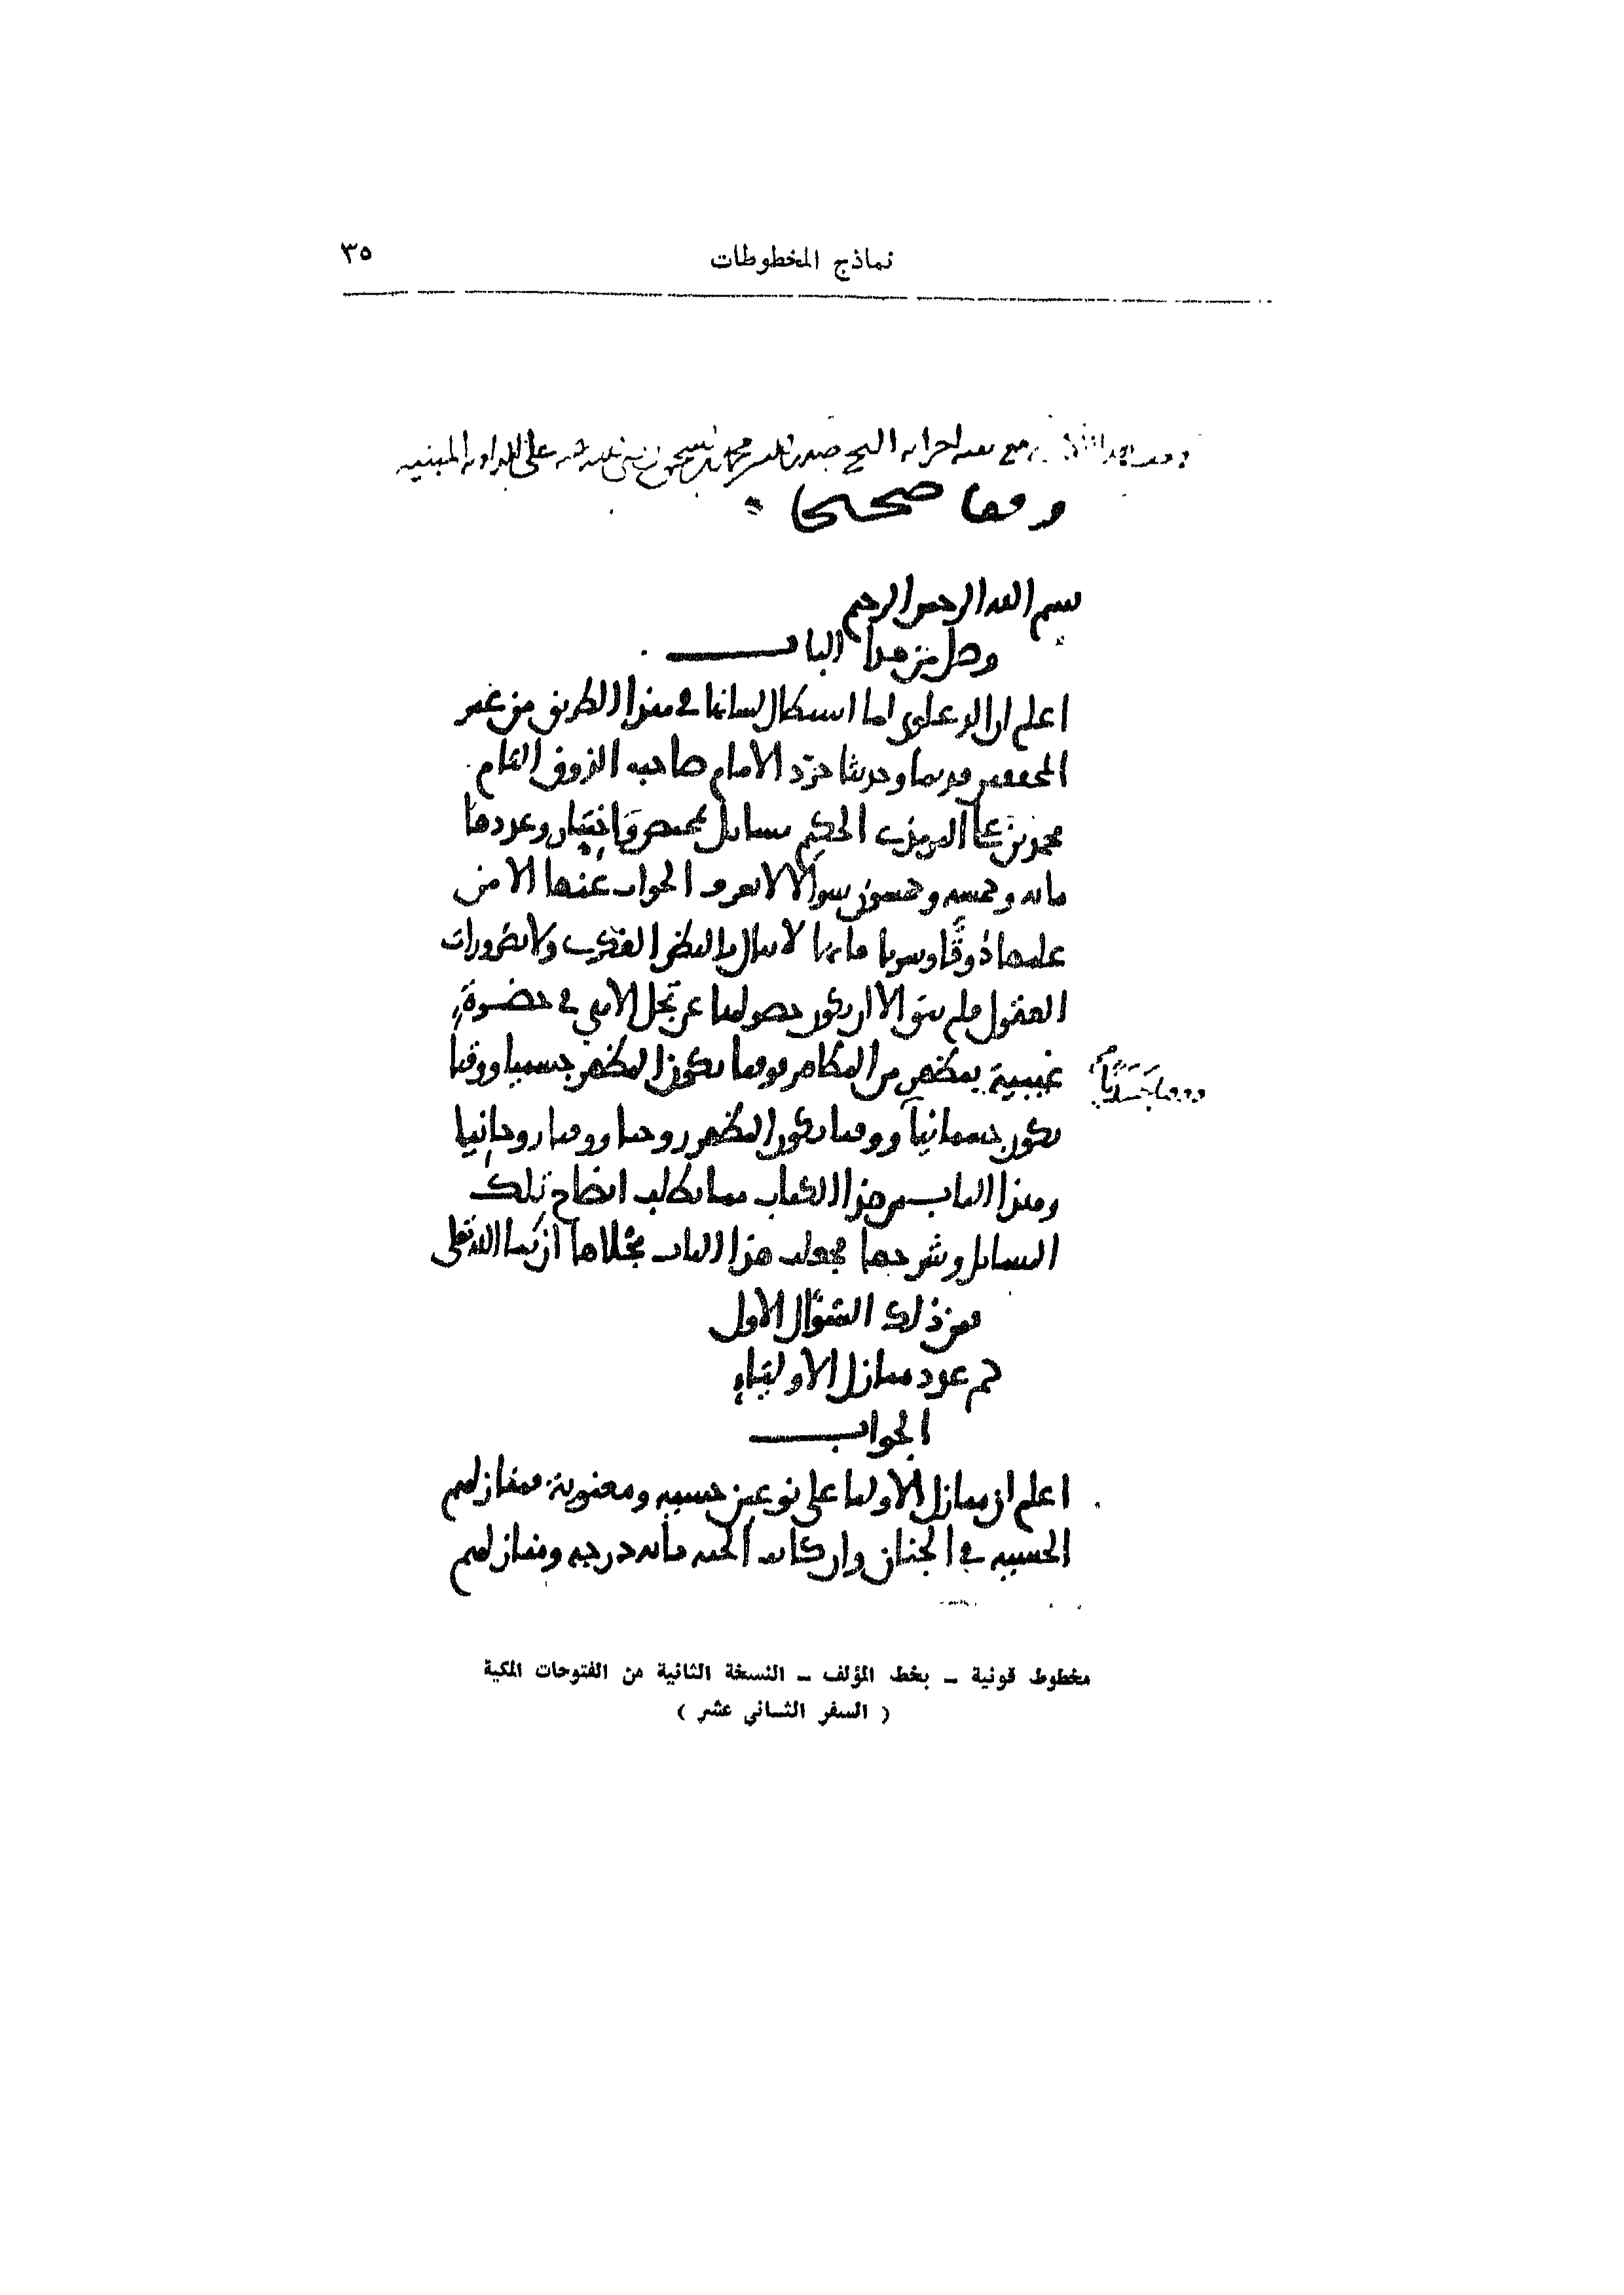 نماذج المخطوطات ٣٥
مع احزاىه الشيخ صدر الدين محمد بن اسحق على الزاويه المبنيه
وقفا صحيحا
بسم الله الرحمن الرحيم
وصل من هذا الباب
اعلم ان الدعاوى لما استطال لسانها في هذا الطريق من غير
المحققين قديما وحديثا جرد الامام صاحب الذوق التام
محمد بن على الترمذي الحكيم مسائل تمحيص واختبار وعددها
مائه وخمسه وخمسون سوالا لا يعرف الجواب عنها الا من
علمها ذوقا وشربا فانها لا تنال بالنظر الفكري ولا بضرورات
العقول فلم يبق الا ان يكون حصولها عن تجل الاهي في حضرة
غيبية بمظهر من المظاهر فوقتا يكون المظهر جسميا ووقتا
ووقتا جسديا
يكون جسمانيا ووقتا يكون المظهر روحيا ووقتا روحانيا
وهذا الباب من هذا الكتاب مما يطلب ايضاح تلك
المسائل وشرحها فجعلت هذا الباب مجلاها ان شا الله تعلى
فمن ذلك السؤال الاول
كم عدد منازل الاولياء
الجواب
اعلم ان منازل الاوليا على نوعين حسيه ومعنوية فمنازلهم
الحسيه في الجنان وان كانت الجنه مائه درجه ومنازلهم
مخطوط قونية – بخط المؤلف – النسخة الثانية من الفتوحات المكية
( السفر الثاني عشر )